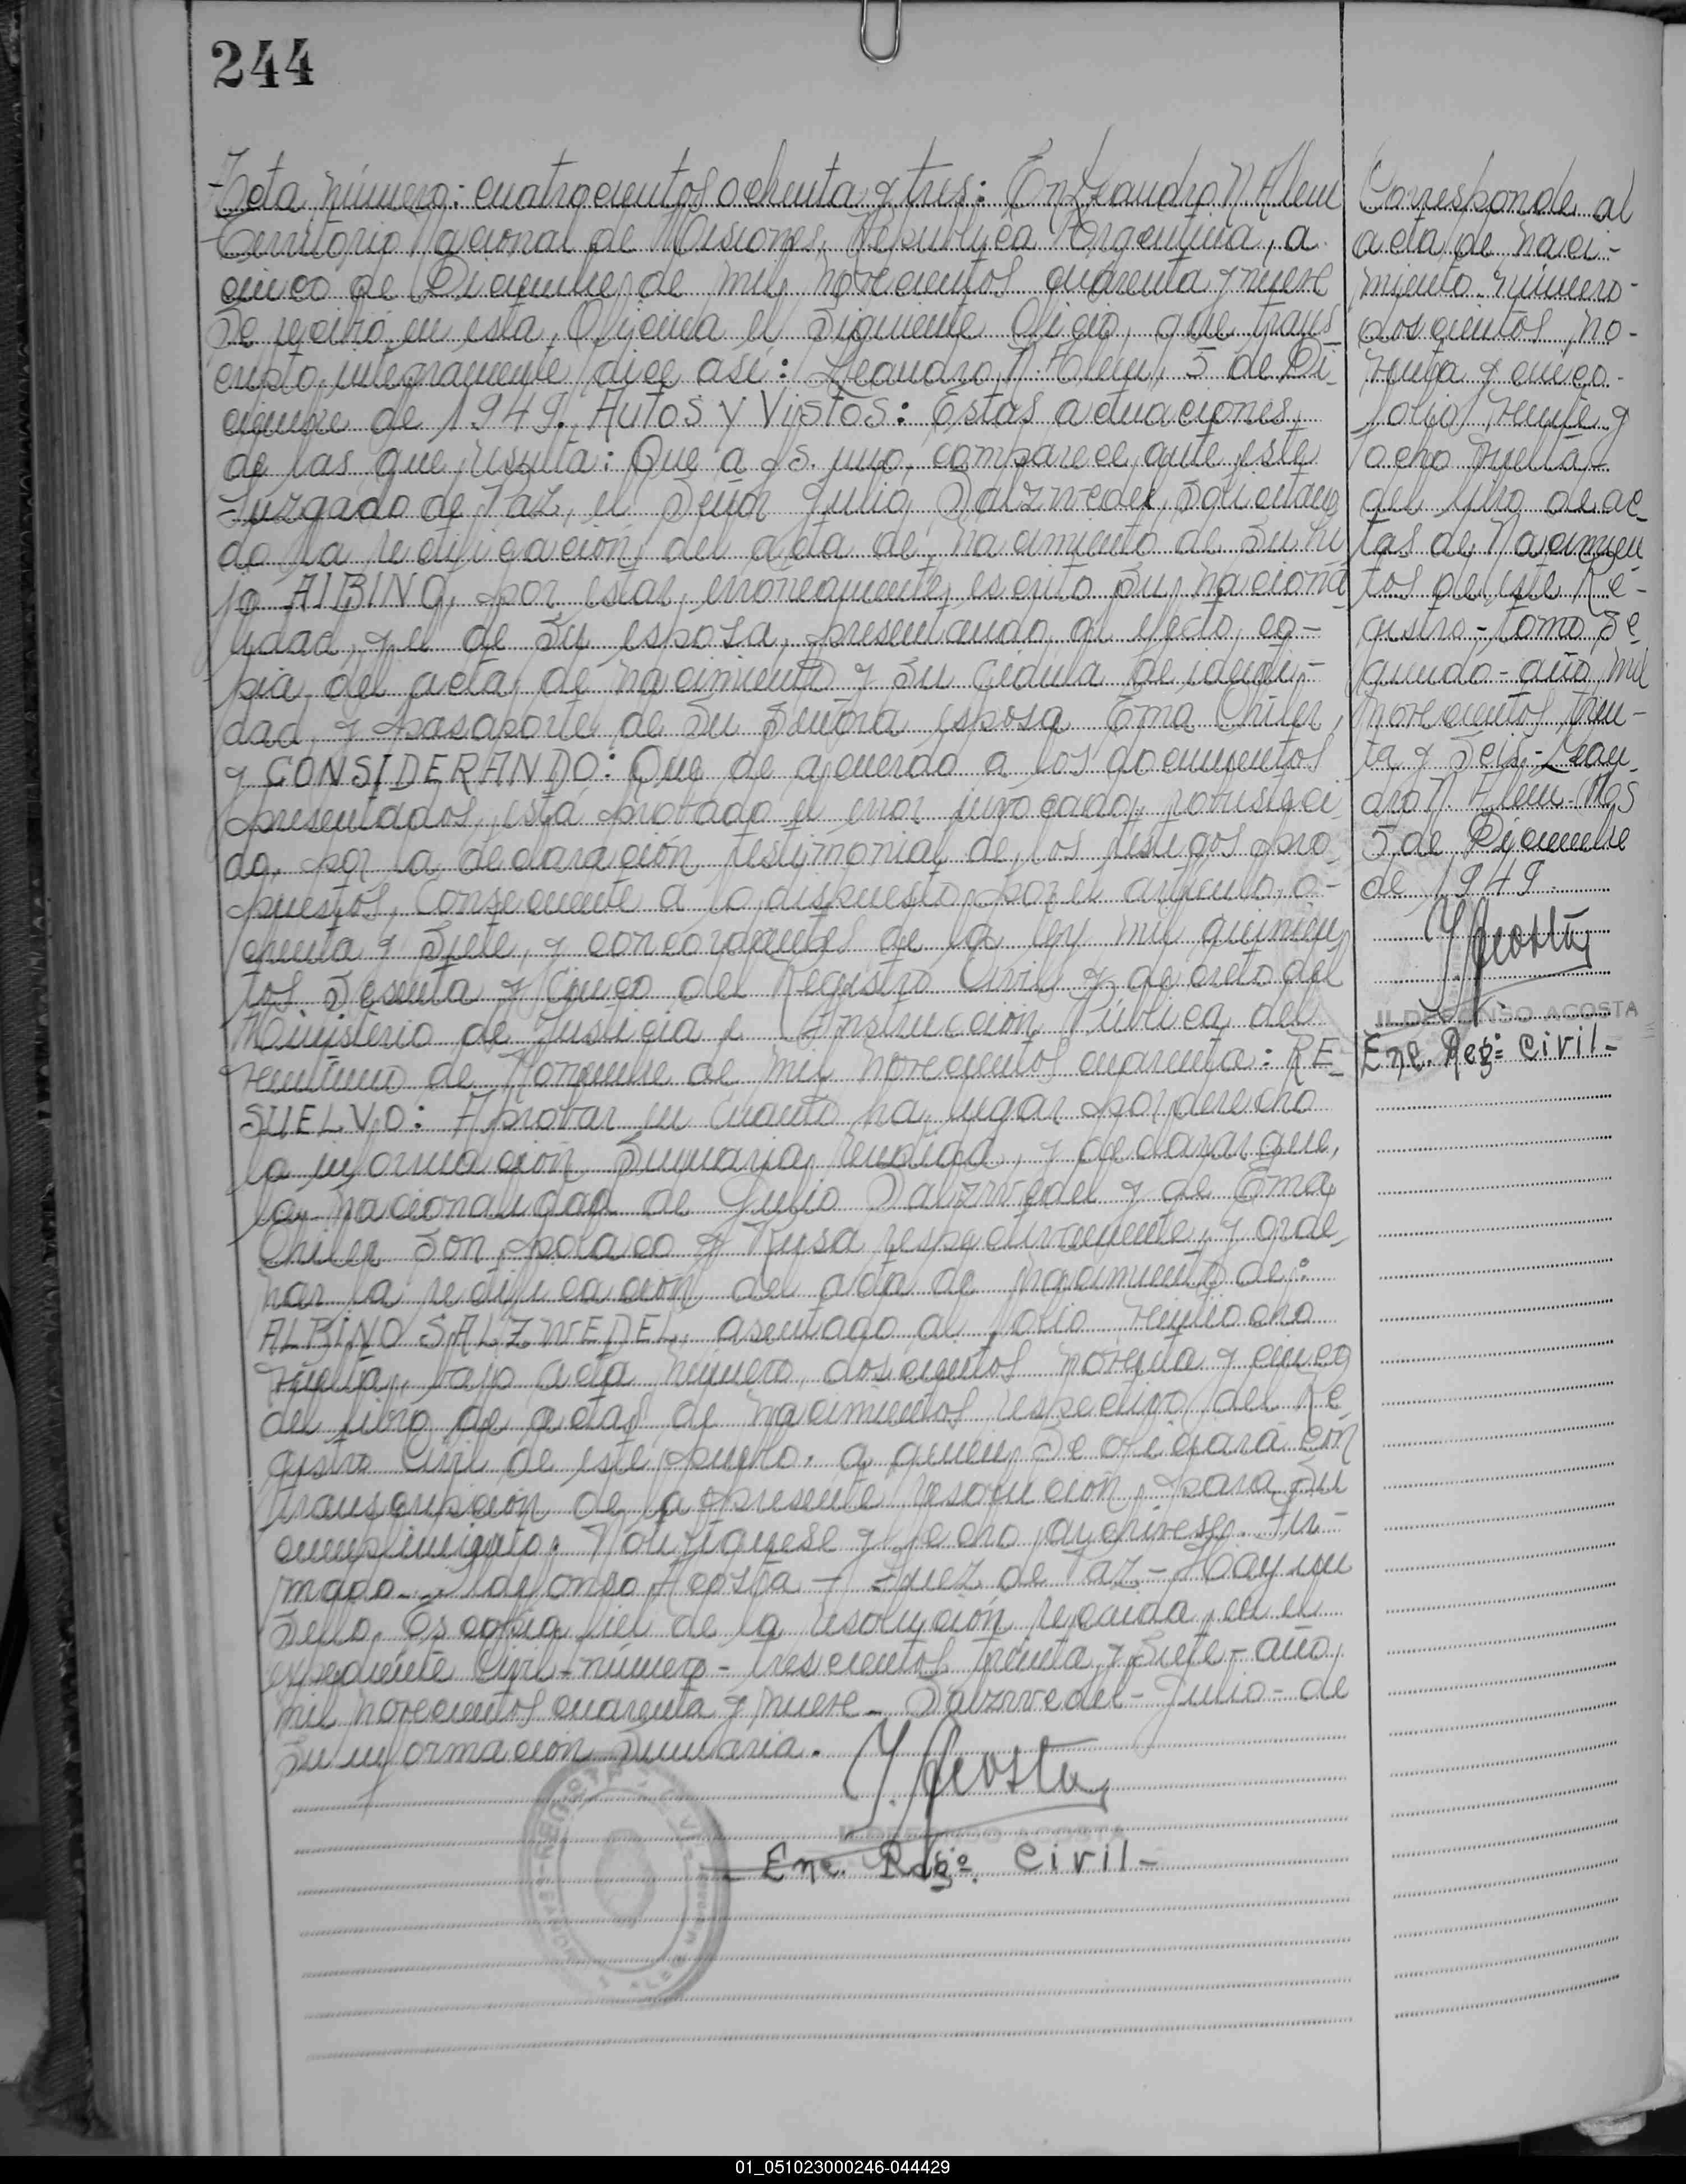 244
Acta número: cuatrocientos ochenta y tres: En Leandro N. Alem
Territorio Nacional de Misiones, República Argentina, a
cinco de Diciembre, de mil novecientos cuarenta y nueve
Se recibió en esta, Oficina el Siguiente Oficio, que trans
cripto integramente dice así: Leandro N. Alem, 5 de Di-
ciembre de 1949. AUTOS Y VISTOS: Estas actuaciones,
de las que resulta: Que a fs. uno, comparece ante este
Juzgado de Paz, el Señor Julio Salzwedel, Solicitan
do la rectificación del acta de nacimiento de Su hi
jo ALBINO, por estar, erroneamente, escrito Su naciona
lidad, y el de Su esposa, presentando al efecto, co-
pia del acta de nacimiento y Su Cédula de identi-
dad, y pasaporte de Su Señora esposa Ema Chiler,
y CONSIDERANDO: Que de acuerdo a los documentos
presentados, está probado el error invocado, robusteci
do, por la declaración testimonial de los testigos pro-
puestos, Consecuente a lo dispuesto por el artículo o-
chenta y Siete, y concordantes de la ley mil quinien
tos Sesenta y Cinco del Registro Civil y decreto del
Ministerio de Justicia e Instrucción Pública del
veintiuno de Noviembre de mil novecientos cuarenta: RE-
SUELVO: Aprobar en cuanto ha lugar por derecho
la información Sumaria, rendida, y declarar que,
la nacionalidad de Julio Salzwedel y de Ema
Chiler Son, polaco y Rusa respectivamente, y orde-
nar la rectificación del acta de nacimiento de:
ALBINO SALZWEDEL, asentado al folio veintiocho
vuelta, bajo acta número, doscientos noventa y cinco
del libro de actas de nacimientos respectivo del Re
gistro Civil de este pueblo, a quien Se oficiará con
transcripción de la presente resolución, para Su
cumplimiento. Notifíquese y fecho archívese. Fir-
mado. Ildefonso Acosta - Juez de Paz - Hay un
Sello. Es copia fiel de la resolución recaída en el
expediente Civil - número - trescientos treinta y Siete - año
mil novecientos cuarenta y nueve - Salzwedel - Julio - de
Su información Sumaria.
I. Acosta
ILDEFONSO ACOSTA
Enc. Regº. Civil -
Corresponde al
acta de naci-
miento número-
doscientos no-
venta y cinco-
folio veinte y
ocho vuelta-
del libro de ac-
tas de Nacimien
tos de este Re-
gistro - tomo Se-
gundo - año mil
novecientos trein-
ta y Seis - Lean-
dro N. Alem - Mnes
5 de Diciembre
de 1949
I. Acosta
ILDEFONSO ACOSTA
Enc. Regº Civil -
01_051023000246-044429